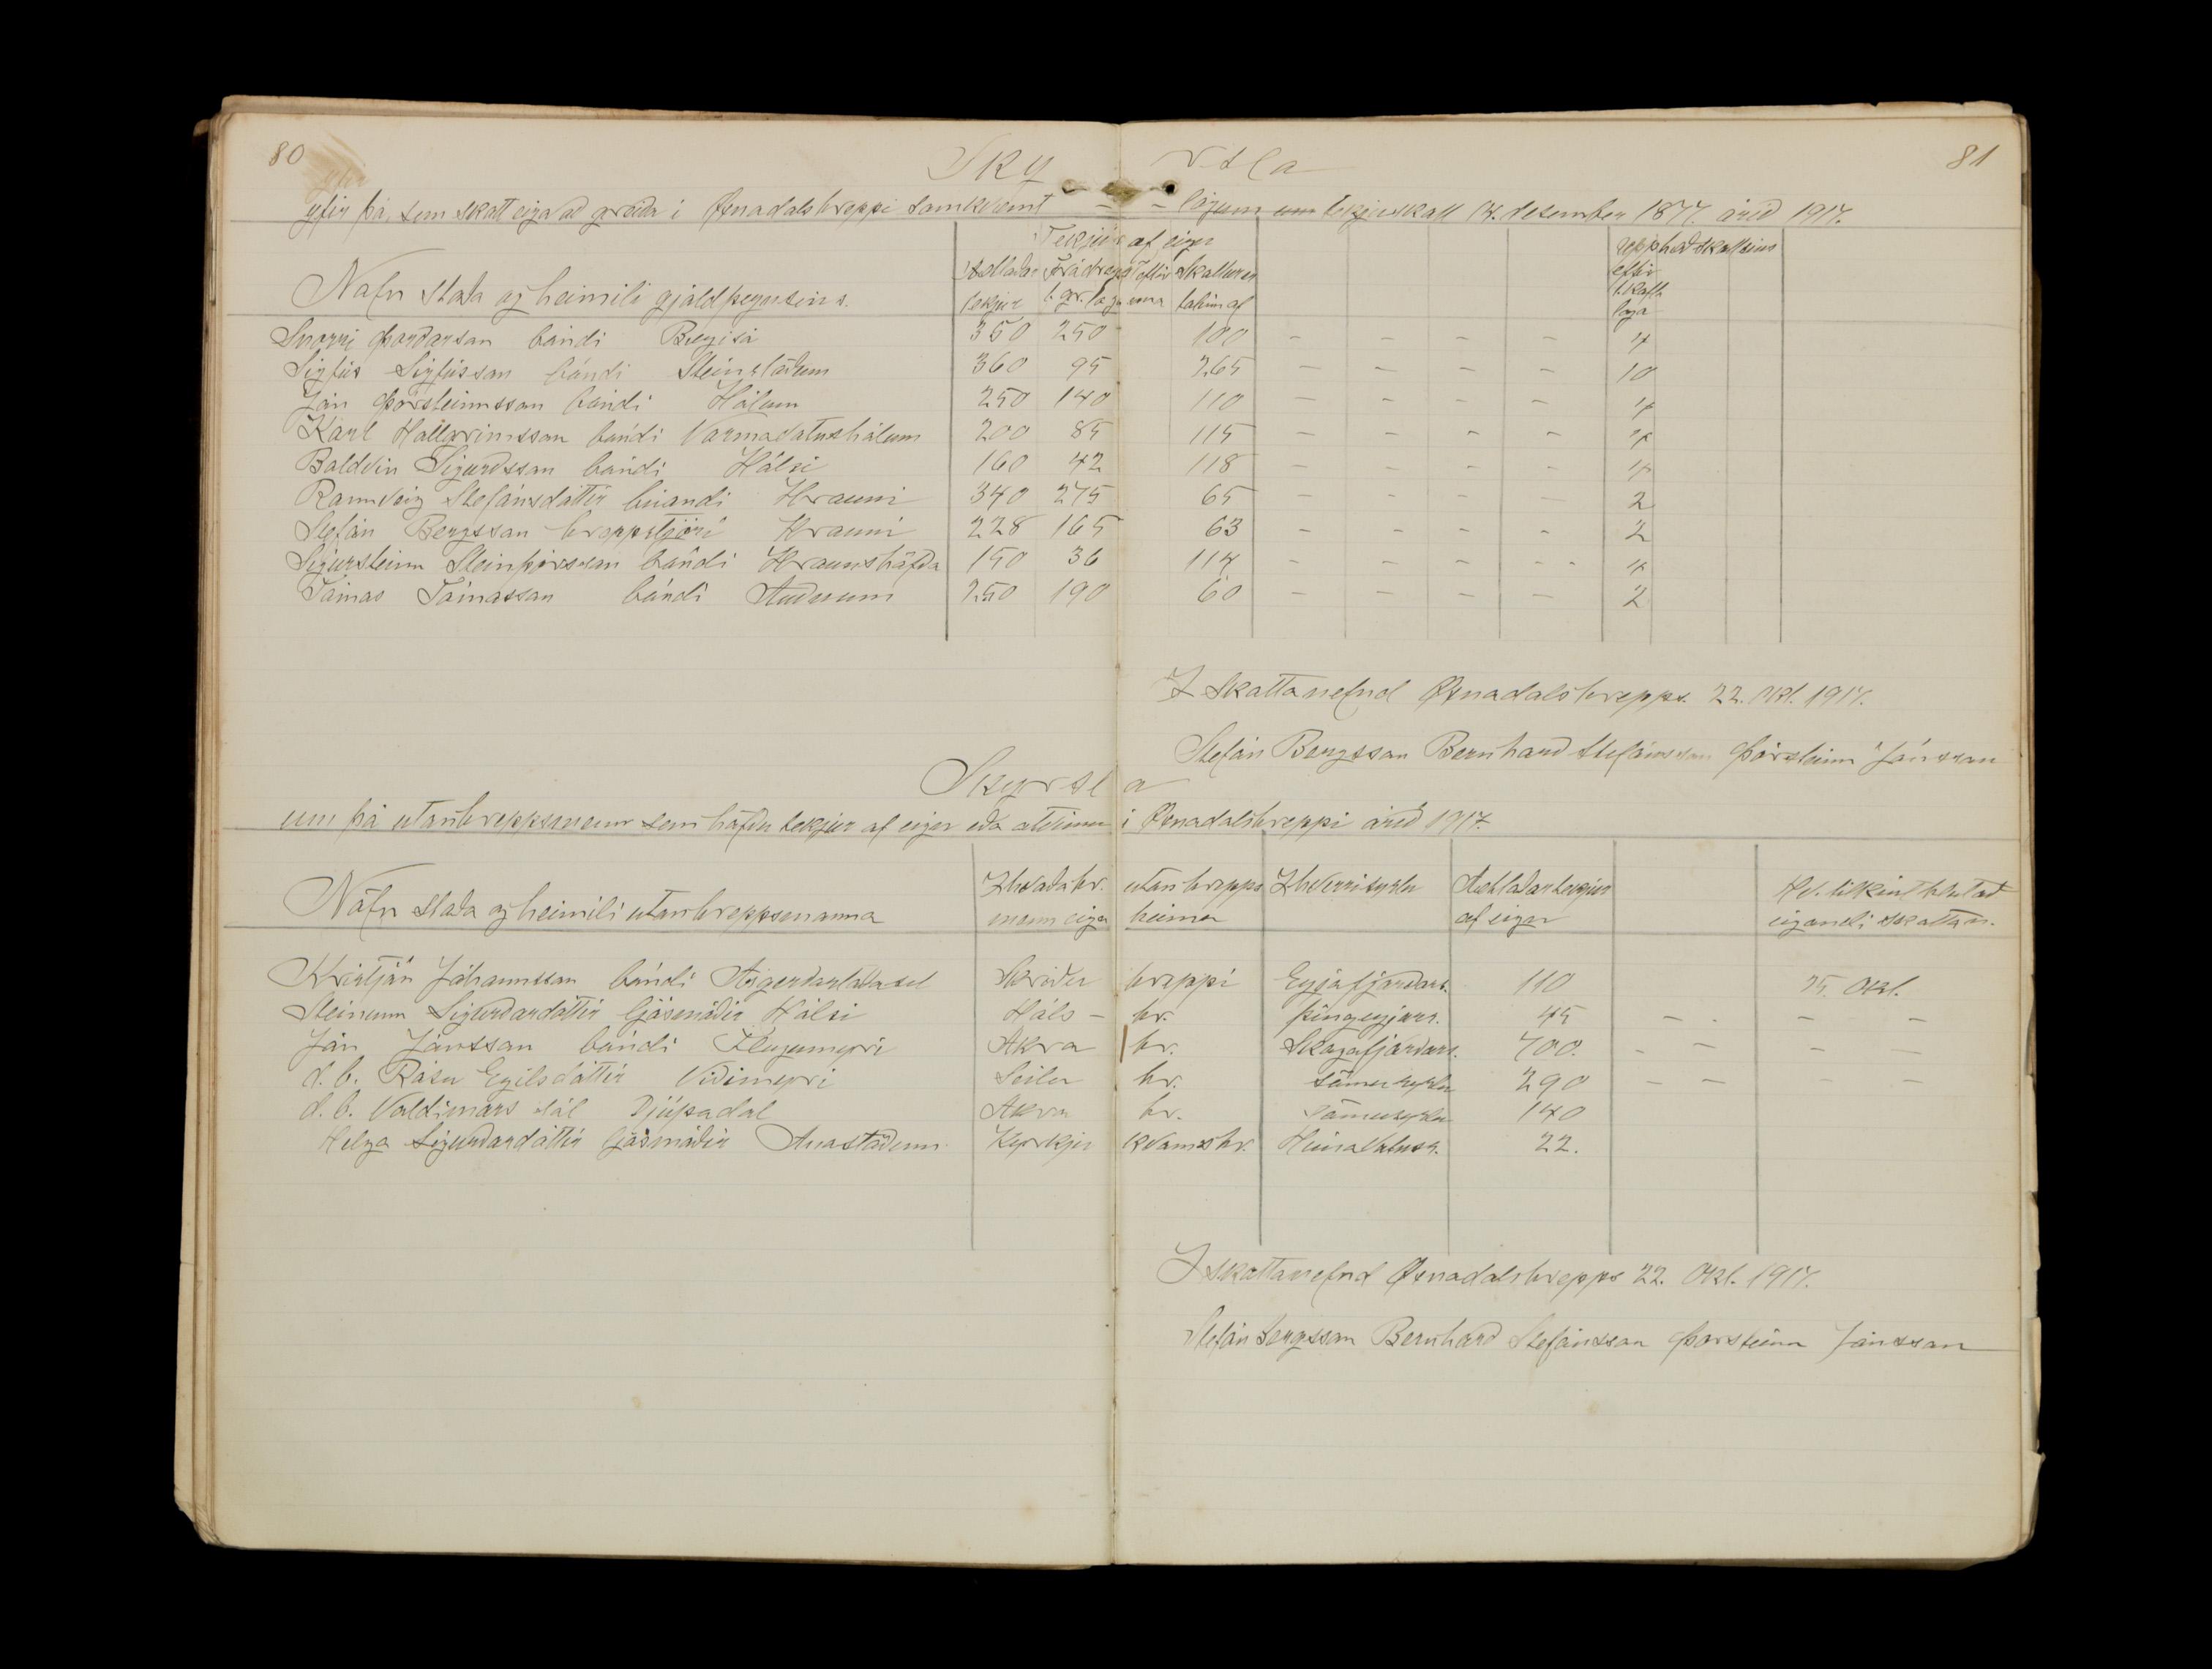 80
81
Ský rsla
yfir
yfir þá, sem skatt eiga að greiða í Öxnadalshreppi samkvæmt lögum um tekjuskatt 14. desember 1877. árið 1917.
Tekjur af eign
Nafn staða og heimili gjaldþegnsins.
Áætlaðar tekjur
Frádregst eftir 1. gr. laganna
Skatturer tekinn af
Upphæð skattsins eftir skattlaga
Snorri Þórðarson bóndi Bægisá 350 250 100 - - - - 4
Sigfús Sigfússon bóndi Steinsstöðum 360 95 265 - - - - 10
Jón Þorsteinnsson bóndi Hólum 250 140 110 - - - - 4
Karl Hallgrímsson bóndi Varmavatnshólum 200 85 115 - - - - 4
Baldvin Sigurðsson bóndi Hálsi 160 42 118 - - - - 4
Rannveig Stefánsdóttir búandi Hrauni 340 275 65 - - - - 2
Stefán Bergsson hreppstjóri Hrauni 228 165 63 - - - - 2
Sigursteinn Steinþórsson bóndi Hraunshöfða 150 36 114 - - - - 4
Tómas Tómasson bóndi Auðnum 250 190 60 - - - - 2
Í skattanefnd Öxnadalshrepps. 22. Okt. 1917.
Stefán Bergsson Bernharð Stefánsson Þorsteinn Jónsson
Skýrsla
um þá utanhreppsmenn sem höfðu tekjur af eign eða atvinnu í Öxnadalshreppi árið 1917.
Nöfn staða og heimili utanhreppsmanna
Í hvaða hr. utanhrepps menn eiga heima
Í hverri sýslu
Áætlaðar tekjur af eign
Hv. tilkint hlutað eigandi skattan.
Kristján Jóhannsson bóndi Ásgerðarstaðasel Skriðu hreppi Eyjafjarðars. 110 25. Okt.
Steinunn Sigurðardóttir ljósmóðir Hálsi Háls - hr. Þingeyjars. 45 - - - -
Jón Jónsson bóndi Flugumýri Akra hr. Skagafjarðars. 700. - - - -
d. b. Rósu Egilsdóttir Víðimýri Seilu hr. sömu sýslu 290 - - - -
d. b. Valdimars sál Djúpadal Akra hr. sömu sýslu 140
Helga Sigurðardóttir ljósmóðir Ánastöðum Kyrkju hvamshr. Húnavatnss. 22.
Í skattanefnd Öxnadalshrepps 22. Okt. 1917.
Stefán Bergsson Bernharð Stefánsson Þorsteinn Jónsson